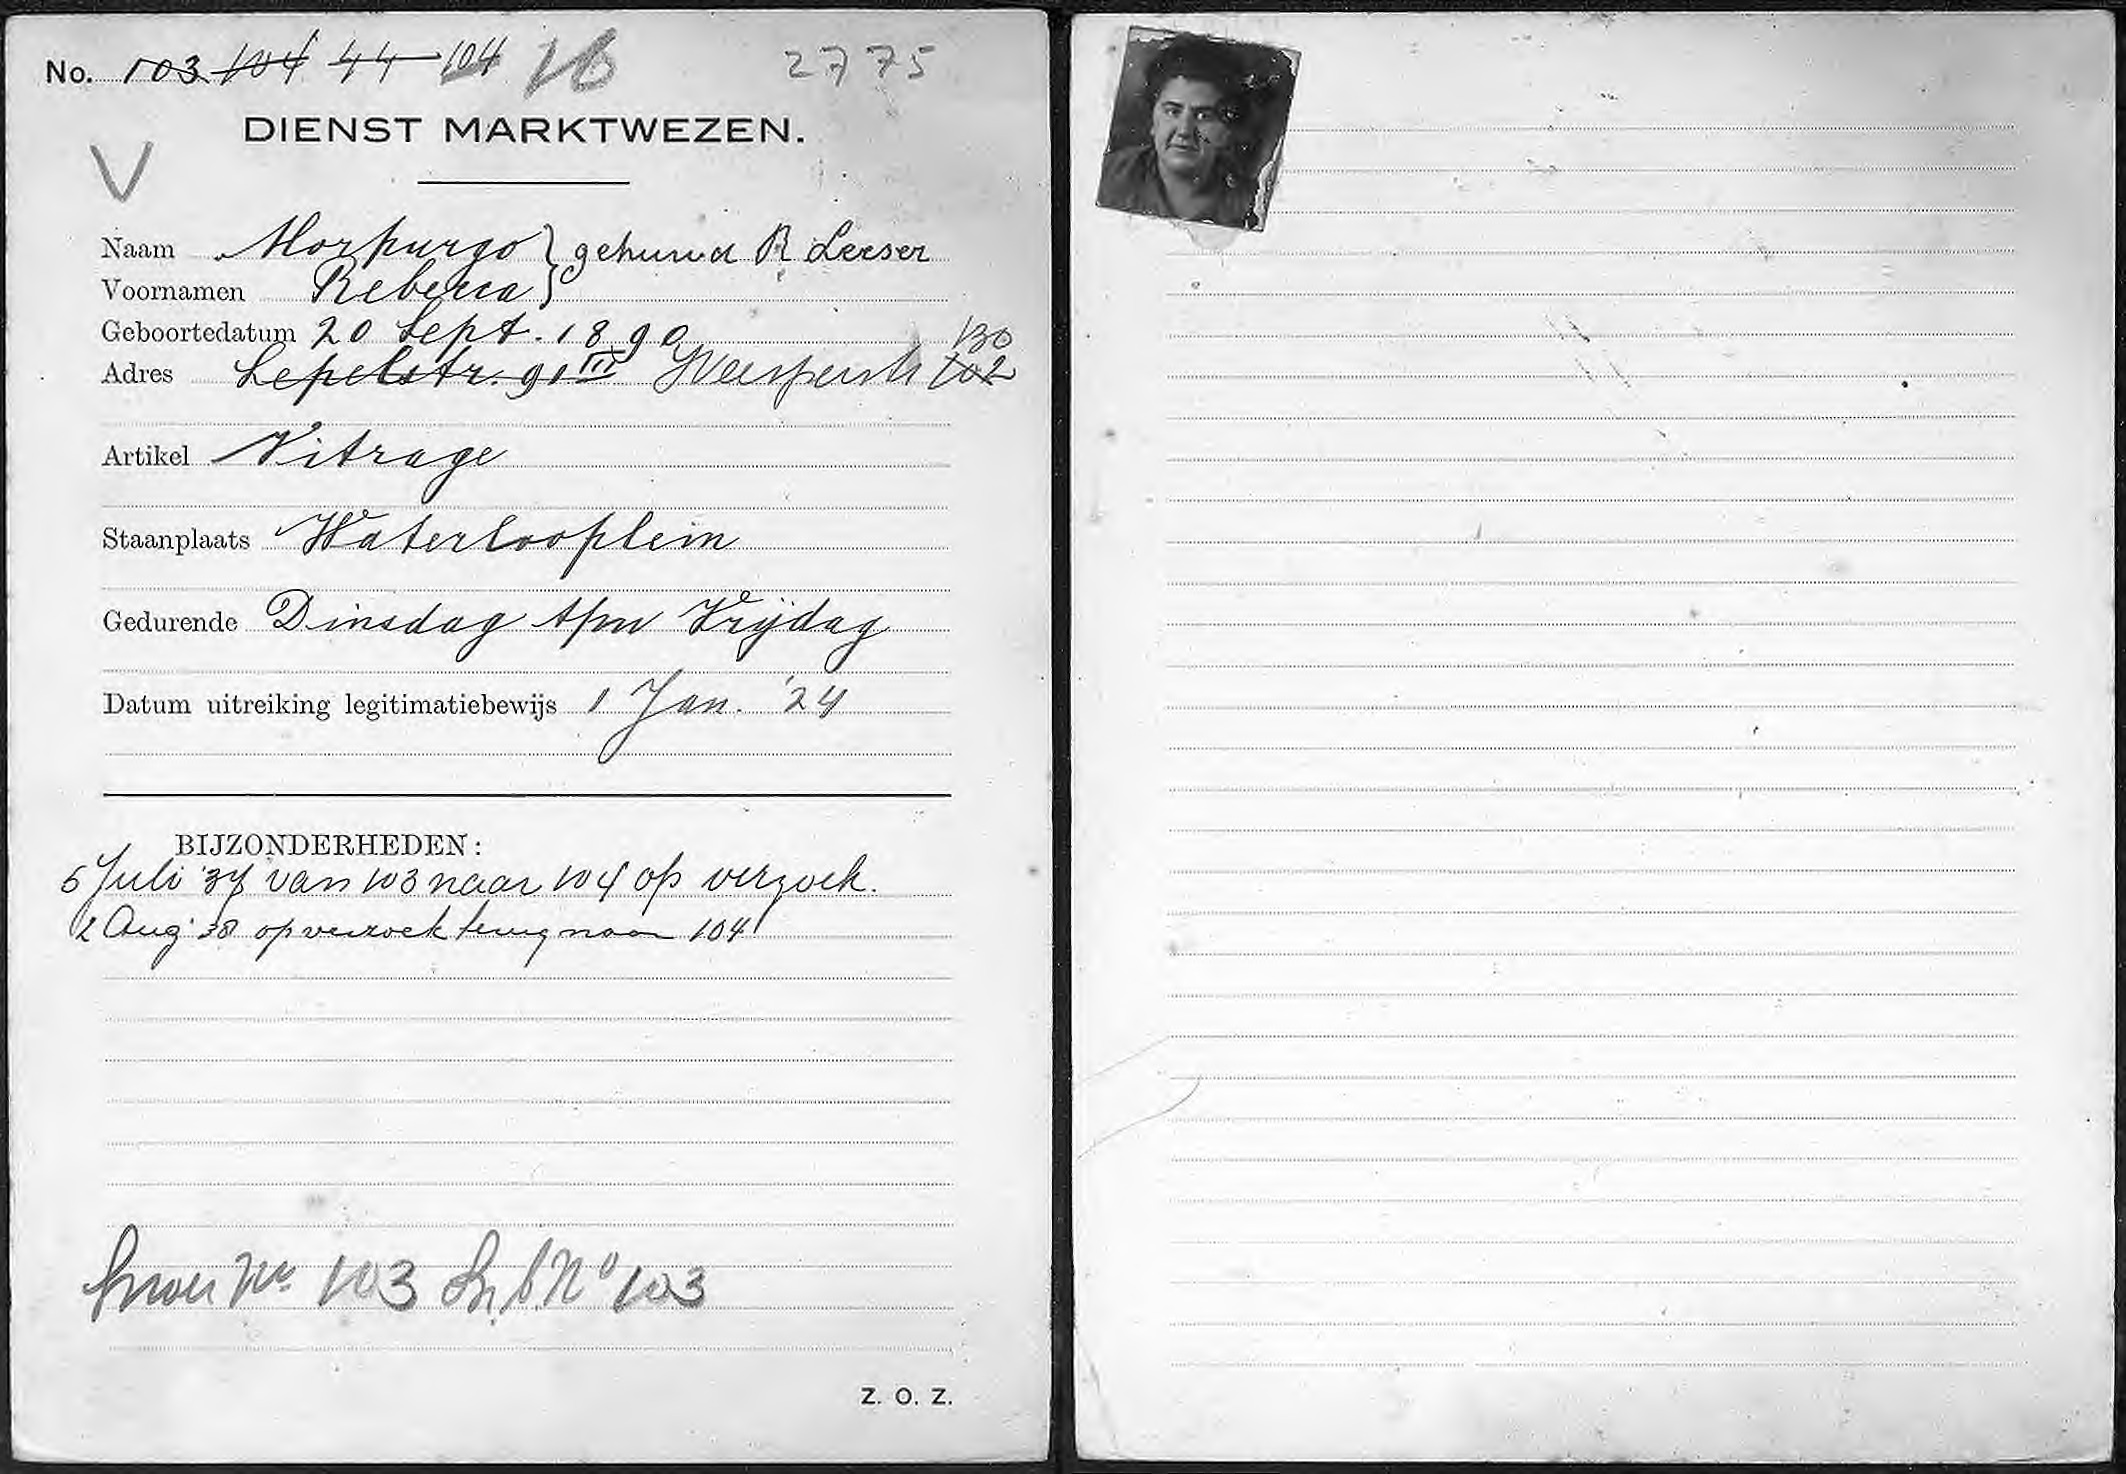 No. 103 104 44 104 16 2775
DIENST MARKTWEZEN.
V
Naam Morpurgo } gehuwd R Leeser
Voornamen Rebecca
Geboortedatum 20 Sept. 1890
130
Adres Lepelstr. 91 III Weesperstr 102
Artikel Vitrage
Staanplaats Waterlooplein
Gedurende Dinsdag t/m Vrijdag
Datum uitreiking legitimatiebewijs 1 Jan. '24
BIJZONDERHEDEN:
5 Juli '37 van 103 naar 104 op verzoek.
2 Aug '38 op verzoek terug naar 104
No 103 No 103
Z. O. Z.